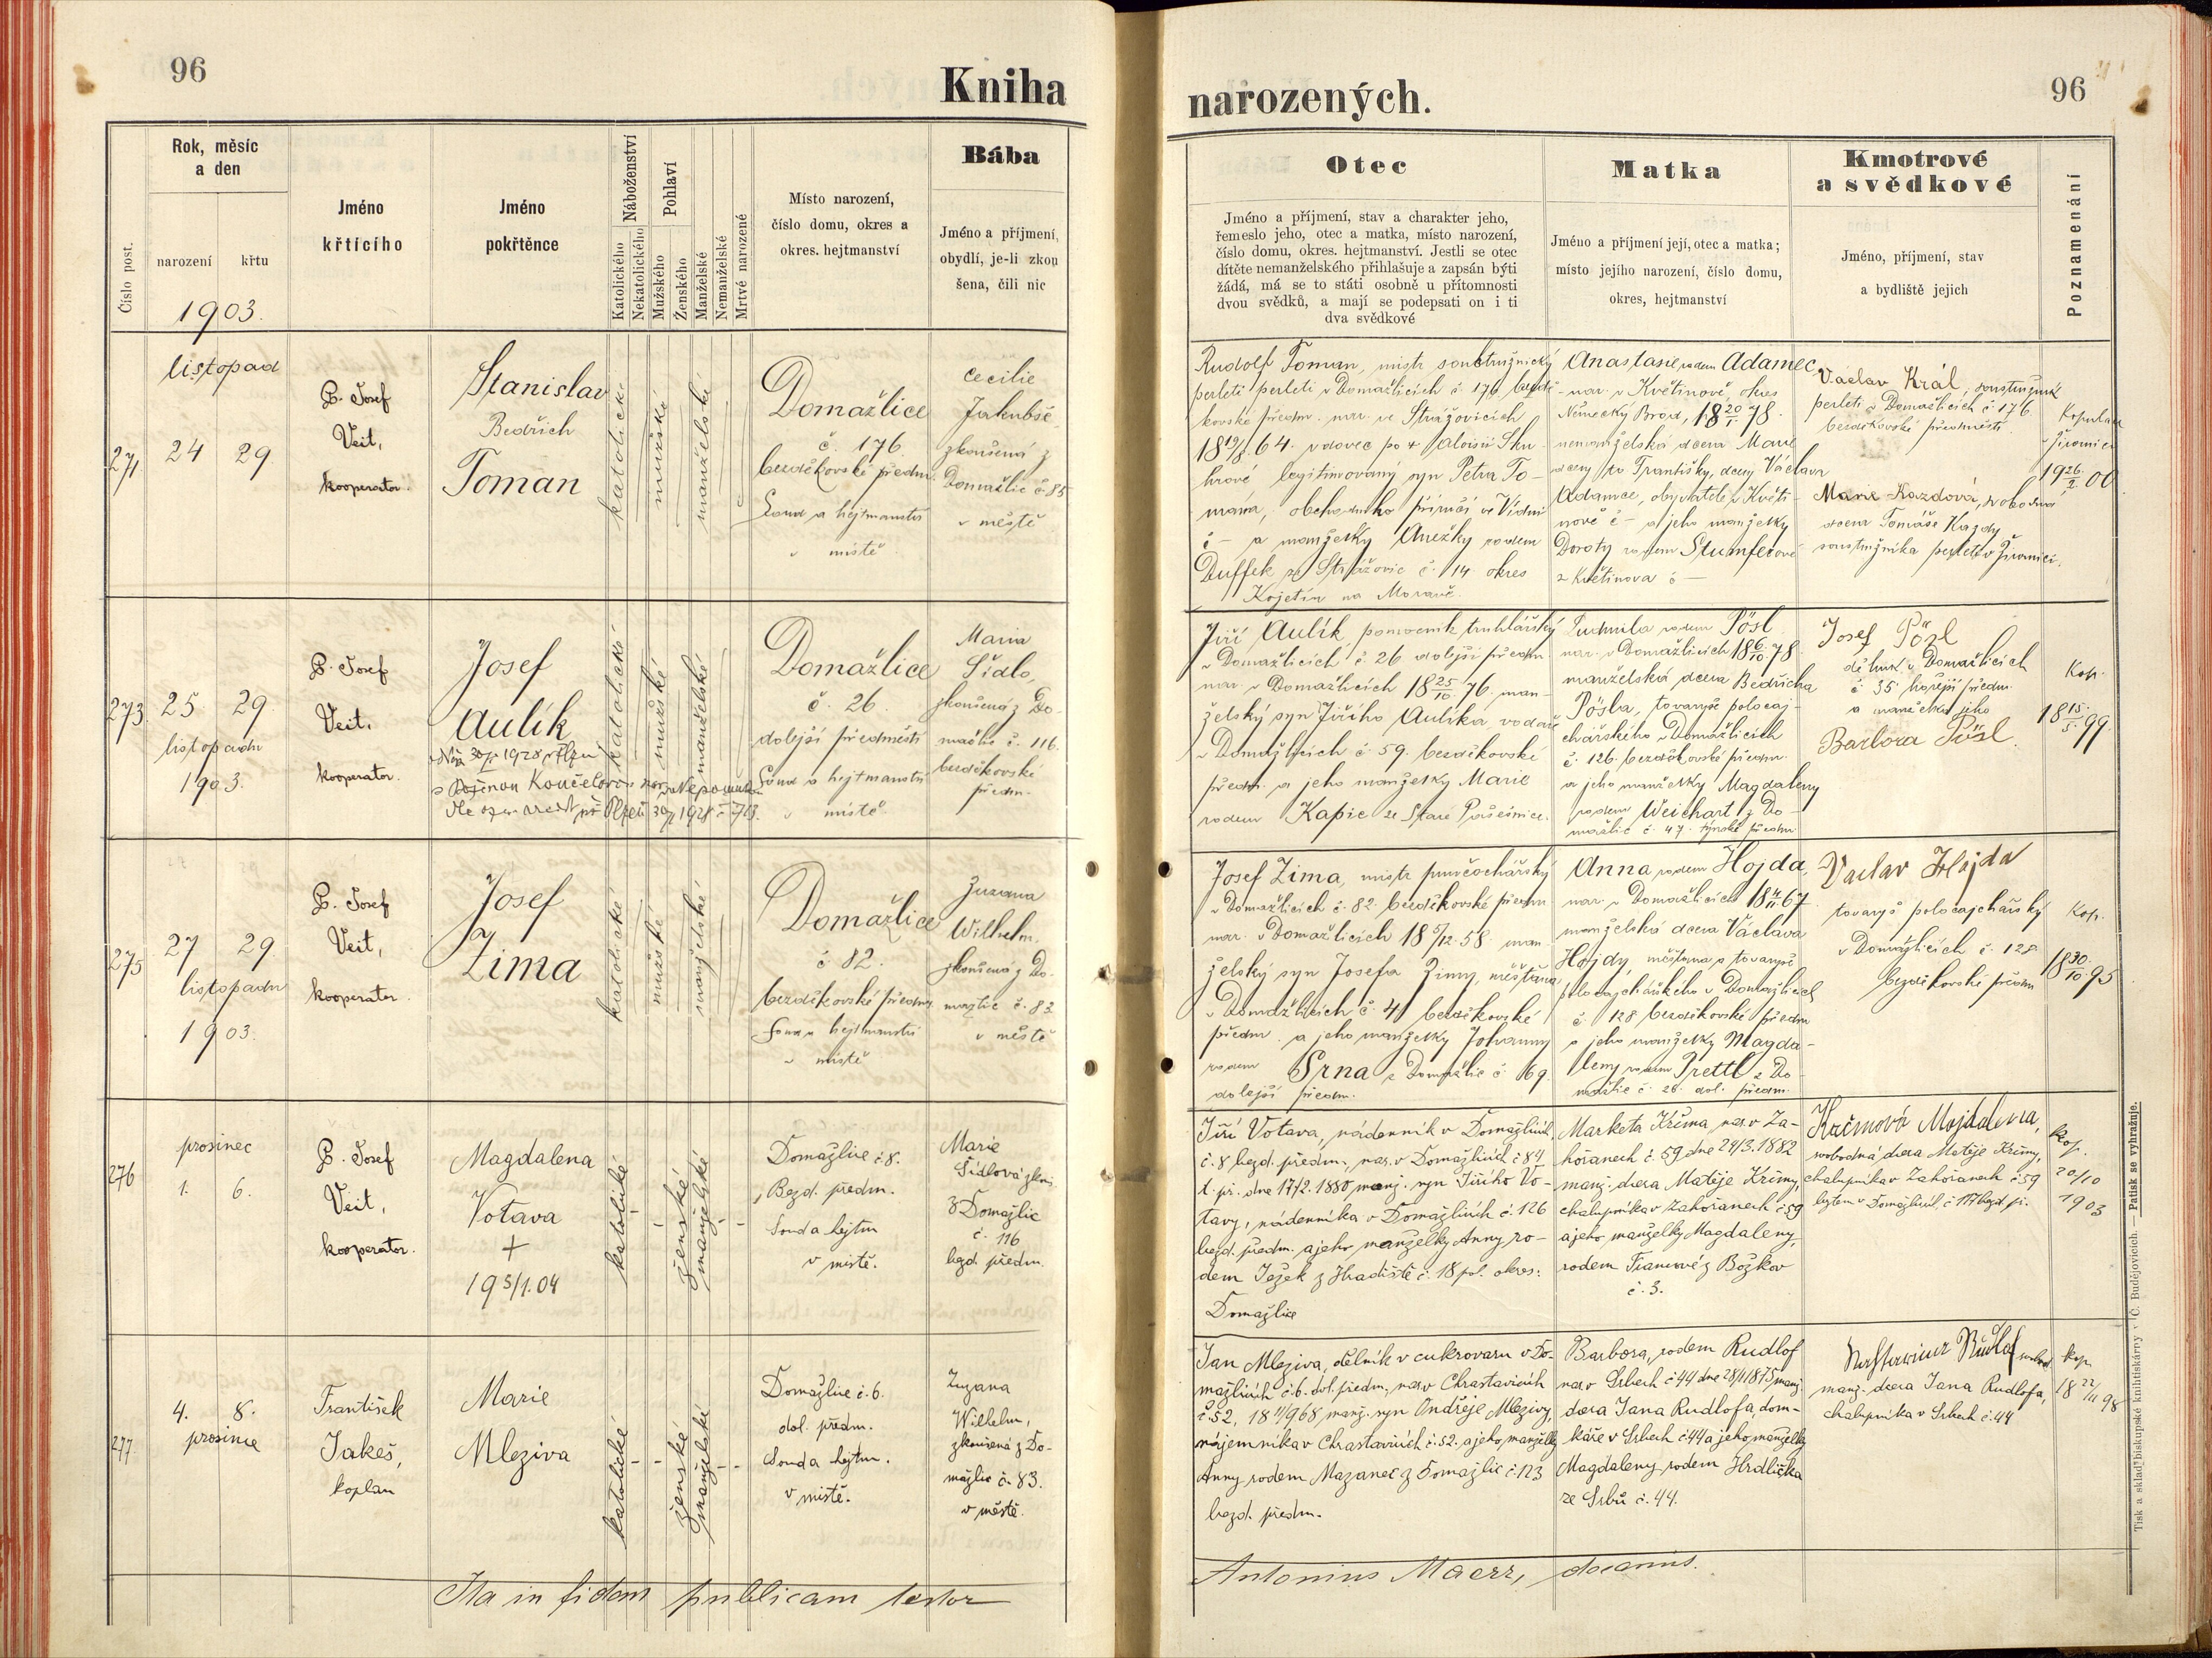 96
Kniha
Rok, měsíc
a den
narození
křtu
1903.
Číslo post.
Jméno
křtícího
Jméno
pokřtěnce
Náboženství
Katolického
Nekatolického
Pohlaví
Mužského
Ženského
Manželské
Nemanželské
Mrtvé narozené
Místo narození,
číslo domu, okres a
okres. hejtmanství
Bába
Jméno a příjmení,
obydlí, je-li zkou
šena, čili nic
271
listopad
24 29
P. Josef
Veit,
kooperator.
Stanislav
Bedřich
Toman
katolické
mužské
manželské
Domažlice
č. 176.
bezděkovské předm.
Soud a hejtmanství
v místě
Cecilie
Jakubše,
zkoušená z
Domažlic č. 85
v městě
273
25 29
listopadu
1903.
P. Josef
Veit,
kooperator.
Josef
Aulík
katolické
mužské
manželské
Domažlice
č. 26.
dolejší předměstí
Soud a hejtmanství
v místě
Maria
Šídlo,
zkoušená z Do-
mažlic č. 116.
bezděkovské
předm.
275
27 29
listopadu
1903.
P. Josef
Veit,
kooperator.
Josef
Zima
katolické
mužské
manželské
Domažlice
č. 82.
bezděkovské předm.
Soud a hejtmanství
v místě
Zuzana
Wilhelm,
zkoušená z Do-
mažlic č. 83
v městě
276
prosinec
1. 6.
P. Josef
Veit,
kooperator.
Magdalena
Votava
+
19 5/1. 04
katolické
ženské
manželské
Domažlice č. 8.
Bezd. předm.
Soud a hejtm
v místě.
Marie
Šídlová zkouš.
z Domažlic
č. 116
bezd. předm.
277
4. 8.
prosince
František
Jakeš,
kaplan
Marie
Mleziva
katolické
ženské
manželské
Domažlice č. 6.
dol. předm.
Soud a hejtm.
v místě.
Zuzana
Wilhelm,
zkoušená z Do-
mažlic č. 83.
v městě.
Ita in fidem publicam testor
narozených.
96
Otec
Jméno a příjmení, stav a charakter jeho,
řemeslo jeho, otec a matka, místo narození,
číslo domu, okres. hejtmanství. Jestli se otec
dítěte nemanželského přihlašuje a zapsán býti
žádá, má se to státi osobně u přítomnosti
dvou svědků, a mají se podepsati on i ti
dva svědkové
Matka
Jméno a příjmení její, otec a matka;
místo jejího narození, číslo domu,
okres, hejtmanství
Kmotrové
a svědkové
Jméno, příjmení, stav
a bydliště jejich
Poznamenání
Rudolf Toman, mistr soustružnický
perleti v Domažlicích č 176 bezdě-
kovské předm. nar. ve Strážovicích
18 19/8 64. vdovec po + Aloisii Sku-
hrové legitimovaný syn Petra To-
mana, obchodního příručí ve Vídni
č – a manželky Anežky rodem
Duffek ze Strážovic č. 14. okres
Kojetín na Moravě.
Anastasie rodem Adamec
nar. v Květinově, okres
Německý Brod, 18 20/1 78.
nemanželská dcera Marie
dcery po Františky, dcery Václava
Adamce, obyvatele v Květi-
nově č – a jeho manželky
Doroty rodem Stumferové
z Květinova č –
Václav Král, soustružník
perleti v Domažlicích č 176
bezděkovské předměstí
Marie Kazdová, svobodná
dcera Tomáše Kazdy
soustružníka perleti v Žirovnici.
v Žirovnici
19 26/2 00
Jiří Aulík, pomocník truhlářský
v Domažlicích č 26 dolejší předm.
nar. v Domažlicích 18 25/10 76. man-
želský syn Jiřího Aulíka vodáře
v Domažlicích č 59. bezděkovské
předm. a jeho manželky Marie
rodem Kapic ze Staré
Ludmila rodem Pösl
nar. v Domažlicích 18 6/10 78.
manželská dcera Bedřicha
Pösla, tovaryše polocaj-
chářského v Domažlicích
č. 126. bezděkovské předm.
a jeho manželky Magdaleny
rodem Weichart z Do-
mažlic č. 47. týnské předm
Josef Pösl
dělník v Domažlicích
č 35 hořejší předm.
a manželka jeho
Barbora Pösl
Kop.
18 15/5 99
Josef Zima, mistr punčochářský
v Domažlicích č. 82. bezděkovské předm
nar. v Domažlicích 18 5/12 58. man-
želský syn Josefa Zimy, měšťana
v Domažlicích č. 41 bezděkovské
předm. a jeho manželky Johanny
rodem Srna z Domažlic č. 69.
dolejší předm.
Anna rodem Hojda,
nar. v Domažlicích
manželská dcera Václava
Hojdy, měšťana a tovaryše
polocajchářského v Domažlicích
č. 128 bezděkovské předm
a jeho manželky Magda-
leny rodem Prettl z Do-
mažlic č. 28. dol. předm.
Václav Hojda
tovaryš polocajchářský
v Domažlicích č. 128
bezděkovské předm
Kop.
18 30/10 95
Jiří Votava, nádenník v Domažlicích,
č. 8 bezd. předm., nar. v Domažlicích č 84
t. př. dne 17/2. 1880 manž. syn Jiřího Vo-
tavy, nádenníka v Domažlicích č. 126
bezd. předm. a jeho manželky Anny ro-
dem Ježek z Hradiště č. 18 pol. okres:
Domažlice
Marketa Křima nar. v Za-
hořanech č. 59 dne 24/3. 1882
manž. dcera Matěje Křimy,
chalupníka v Zahořanech č 59
a jeho manželky Magdaleny,
rodem z Božkov
č. 3.
svobodná dcera Matěje Křimy,
chalupníka v Zahořanech č 59
bytem v Domažlicích, č 117 bezd. př.
kop.
20/10
1903
Jan Mleziva, dělník v cukrovaru v Do-
mažlicích č. 6. dol. předm., nar. v Chrastavicích
č. 52, 18 11/9 68 manž. syn Ondřeje Mlezivy,
nájemníka v Chrastavicích č. 52. a jeho manželky
Anny rodem Mazanec z Domažlic č. 123
bezd. předm.
Barbora, rodem Rudlof
nar. v Srbech č 44 dne 28/11 1875 manž.
dcera Jana Rudlofa, dom-
káře v Srbech č 44 a jeho manželky
Magdaleny rodem Hrdlička
ze Srbů č. 44.
manž. dcera Jana Rudlofa,
chalupníka v Srbech č. 44
kop.
18 22/11 98
Antonius Maerz, decanus.
Tisk a sklad biskupské knihtiskárny v Č. Budějovicích. — Patisk se vyhražuje.